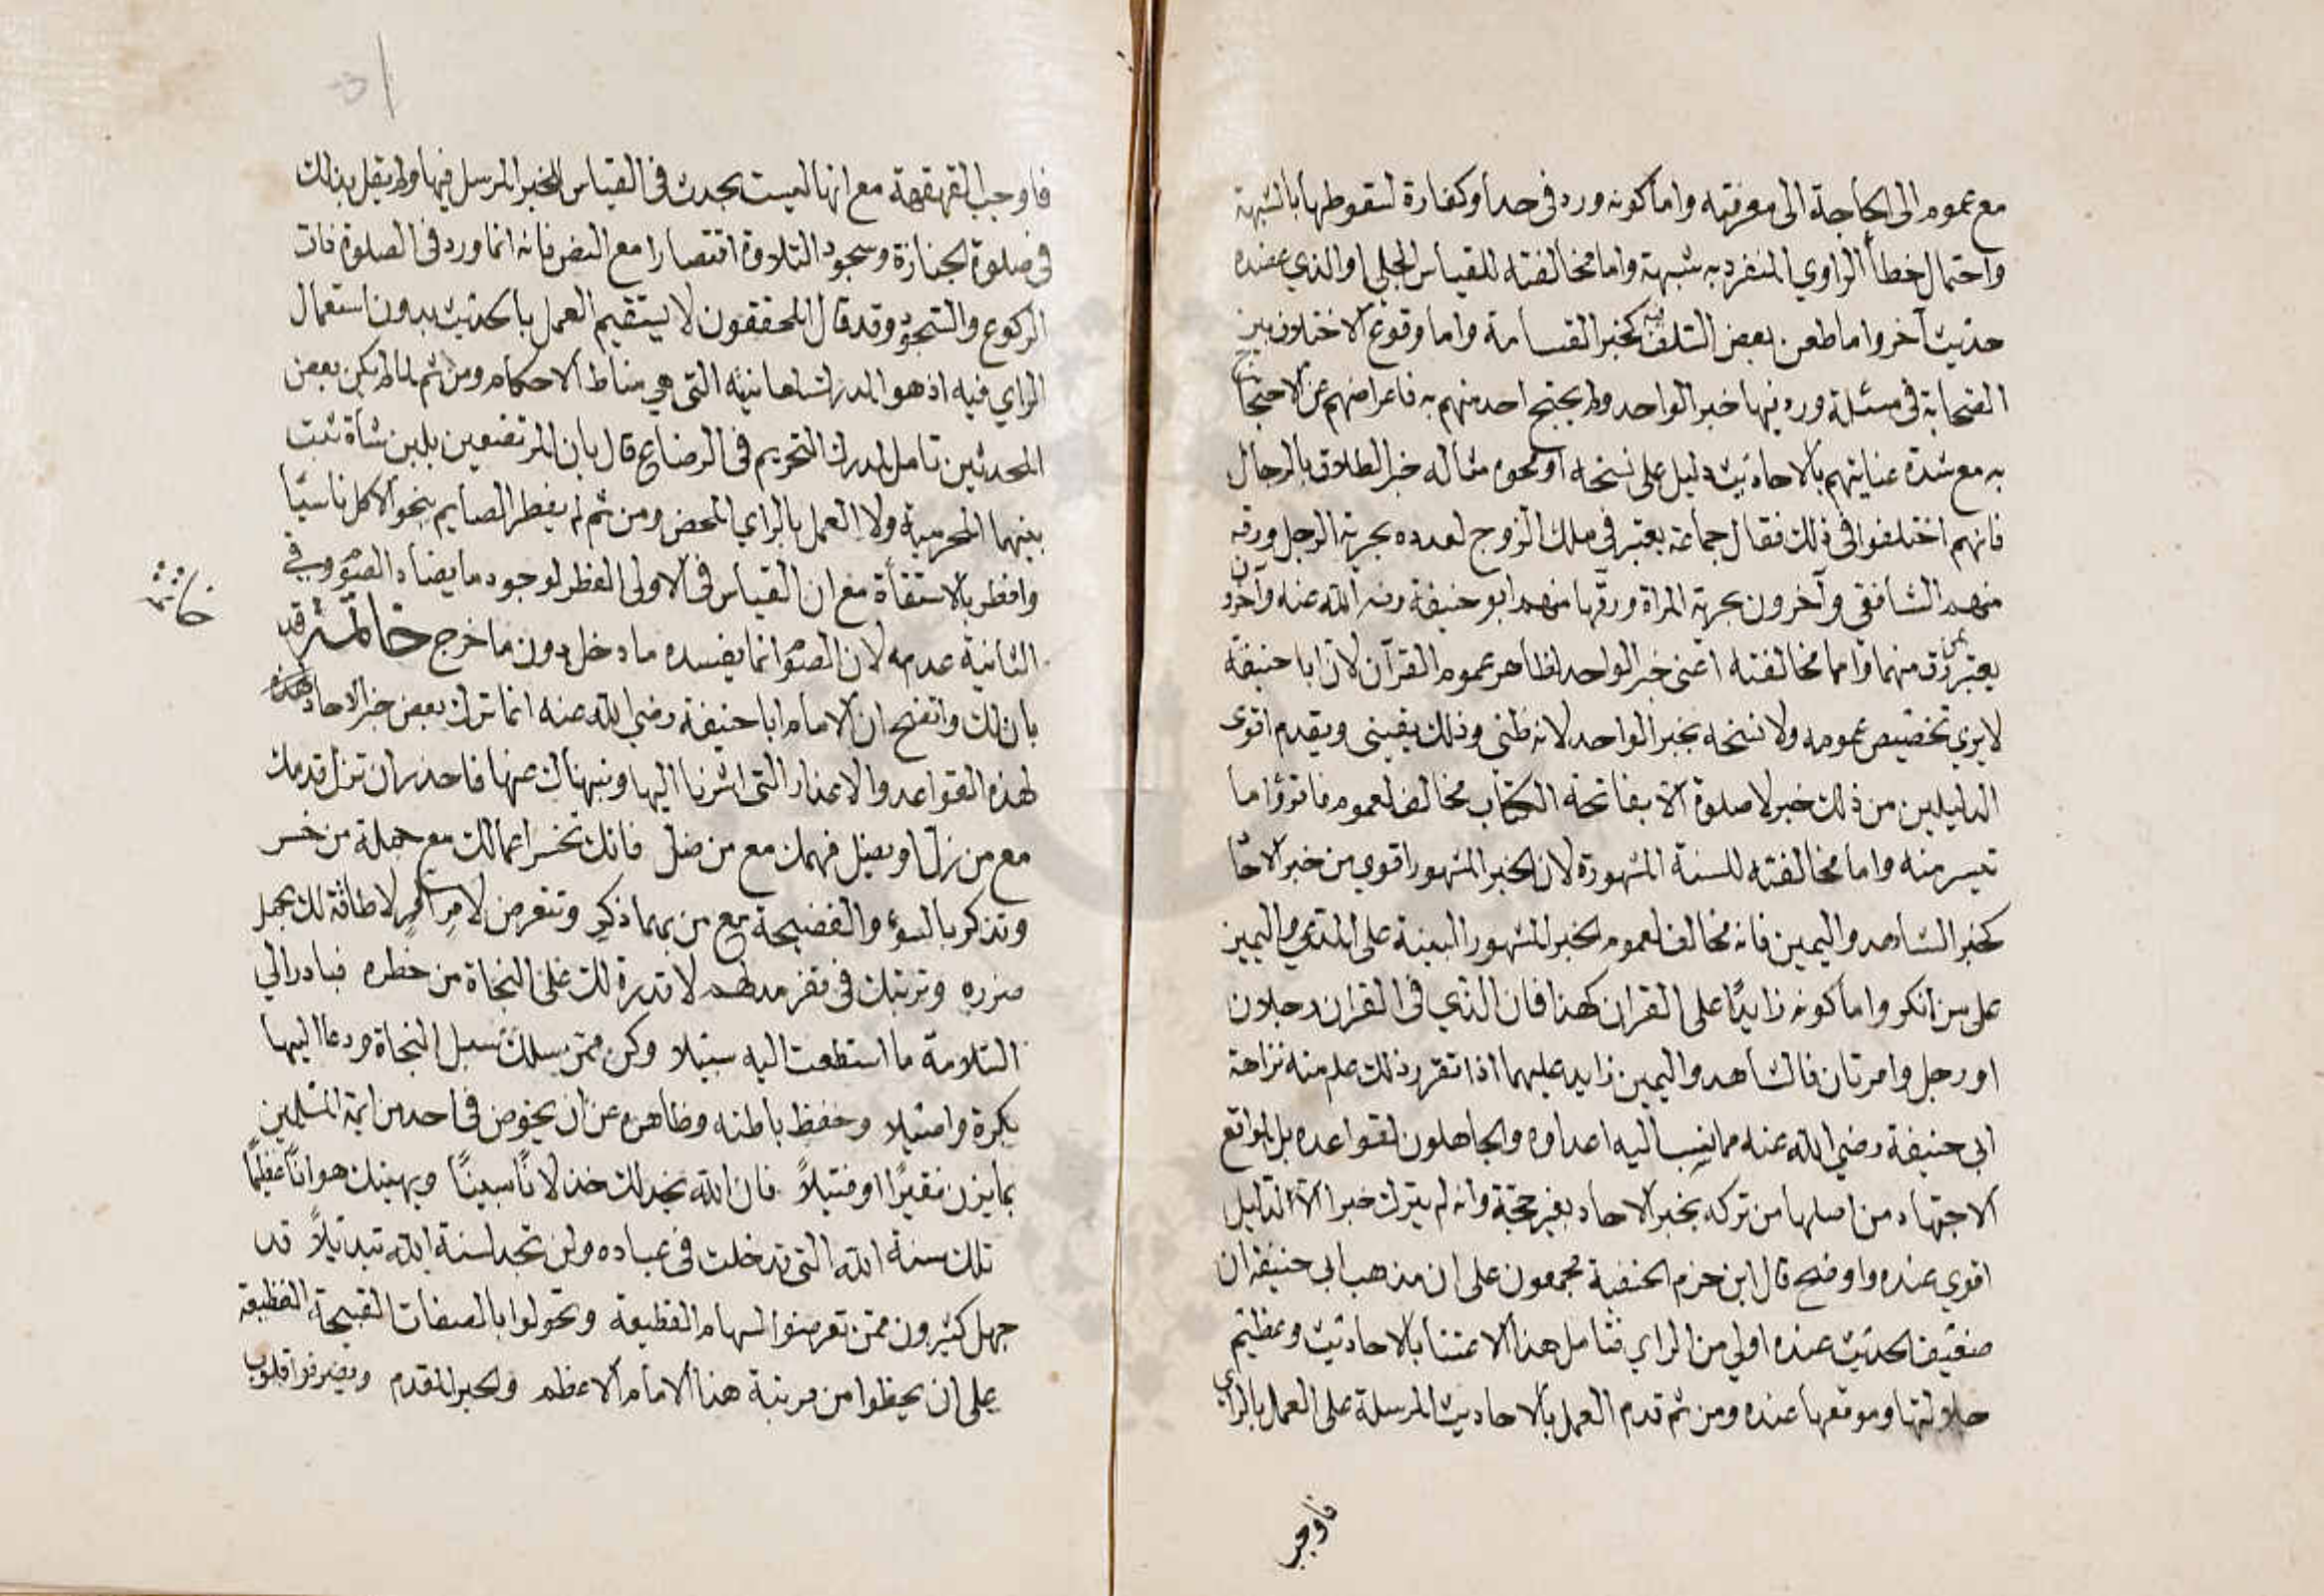 مع عموم الى الحاجة الى معرفته واما كونه ورد فى حد او كفارة لسقوطها بالشبهة
واحتمال خطأ الراوي المنفرد به شبهة واما مخالفته للقياس الجلي او الذي عضده
حديث آخر واما طعن بعض السلف فيه كخبر القسامة واما وقوع الاختلاف بين
الصحابة فى مسئلة ورد فيها خبر الواحد ولم يحتج احد منهم به فاعراضهم عن الاحتجاج
به مع شدة عنايتهم بالاحاديث دليل على نسخه او نحوه مثاله خبر الطلاق بالرجال
فانهم اختلفوا فى ذلك فقال جماعة يعتبر في ملك الزوج لعدده بحرية الرجل ورقه
منهم الشافعي وآخرون بحرية المراة ورقها منهم ابو حنيفة رضى الله عنه وآخرون
يعتبر بمن رق منهما واما مخالفته اعنى خبر الواحد لظاهر عموم القرآن لان ابا حنيفة
لا يري تخصيص عمومه ولا نسخه بخبر الواحد لانه ظني وذلك يقيني ويقدم اقوى
الدليلين من ذلك خبر لا صلوة الا بفاتحة الكتاب مخالف لعموم فاقرؤا ما
تيسر منه واما مخالفته للسنة المشهورة لان الخبر المشهور اقوي من خبر الاحاد
كخبر الشاهد واليمين فانه مخالف لعموم الخبر المشهور البينة على المدعي واليمين
على من انكر واما كونه زايدًا على القران كهذا فان الذي فى القران رجلان
او رجل وامرتان فالشاهد واليمين زايد عليهما اذا تقرر ذلك علم منه نزاهة
ابى حنيفة رضي الله عنه مما نسب اليه اعداوه والجاهلون لقواعده بل لمواقع
الاجتهاد من اصلها من تركه بخبر الاحاد بغير حجة وانه لم يترك خبرا الا لدليل
اقوي عنده واوضح قال ابن حزم الحنفية مجمعون على ان مذهب ابى حنيفة ان
ضعيف الحديث عنده اولى من الراي فتامل هذا الاعتنا بالاحاديث وعظيم
جلالتها وموقعها عنده ومن ثم قدم العمل بالاحاديث المرسلة على العمل بالراي
فاوجب
فاوجب القهقهة مع انها ليست بحدث فى القياس للخبر المرسل فيها ولم يقل بذلك
فى صلوة الجنازة وسجود التلاوة اقتصارا مع النص فانه انما ورد فى الصلوة ذات
الركوع والسجود وقد قال المحققون لا يستقيم العمل بالحديث بدون استعمال
الراي فيه اذ هو المدرك لمعانيه التى هي مناط الاحكام ومن ثم لما لم يكن بعض
المحدثين تامل لمدرك التحريم فى الرضاع قال بان المرتضعين بلبن شاة تثبت
بينهما المحرمية ولا العمل بالراي المحض ومن ثم لم يفطر الصايم بنحو الاكل ناسيًا
وافطر بالاستقأة مع ان القياس فى الاولى الفطر لوجود ما يضاد الصوم وفي
الثانية عدمه لان الصوم انما يفسده ما دخل دون ما خرج خاتمة قد
خاتمة
بان لك واتضح ان الامام ابا حنيفة رضي الله عنه انما ترك بعض خبر الاحاد
لهذه القواعد والاعذار التى اشرنا اليها ونبهناك عنها فاحذر ان تزل قدمك
مع من زل او يضل فهمك مع من ضل فانك تخسر اعمالك مع جملة من خسر
وتذكر بالسوء والفضيحة مع من بهما ذكر وتتعرض لامر لا طاقة لك بحمل
ضرره وترتبك فى قفر مدلهم لا قدرة لك على النجاة من خطره فبادر الى
السلامة ما استطعت اليه سبيلا وكن ممن يسلك سبل النجاة ودعا اليها
بكرة واصيلا وحفظ باطنه وظاهره عن ان يخوض فى احد من ايمة المسلمين
بما يزن نقيرًا او فتيلاً فان الله يخذلك خذلانًا مبينًا ويهينك هوانًا عظيمًا
تلك سنة الله التى قد خلت فى عباده ولن تجد لسنة الله تبديلاً قد
جهل كثيرون ممن تعرضوا لسهام القطيعة وتحولوا بالصفات القبيحة الفظيعة
على ان يحطوا من مرتبة هذا الامام الاعظم والحبر المقدم ويصرفوا قلوب